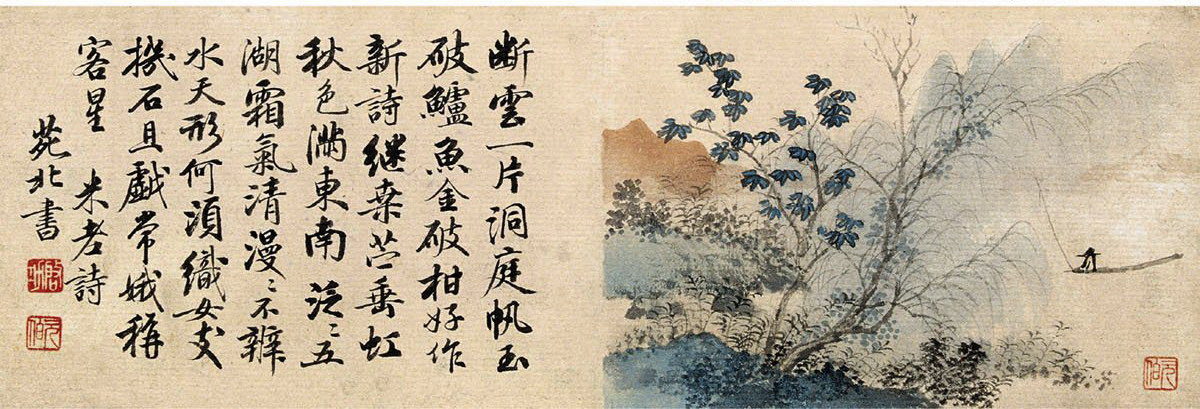 断雲一片洞庭帆玉
破鱸魚金破柑好作
新詩继桒苎垂虹
秋色滿東南泛〻五
湖霜氣清漫〻不辨
水天形何湏織女支
機石且戲常娥稱
客星 米老詩
苑北書